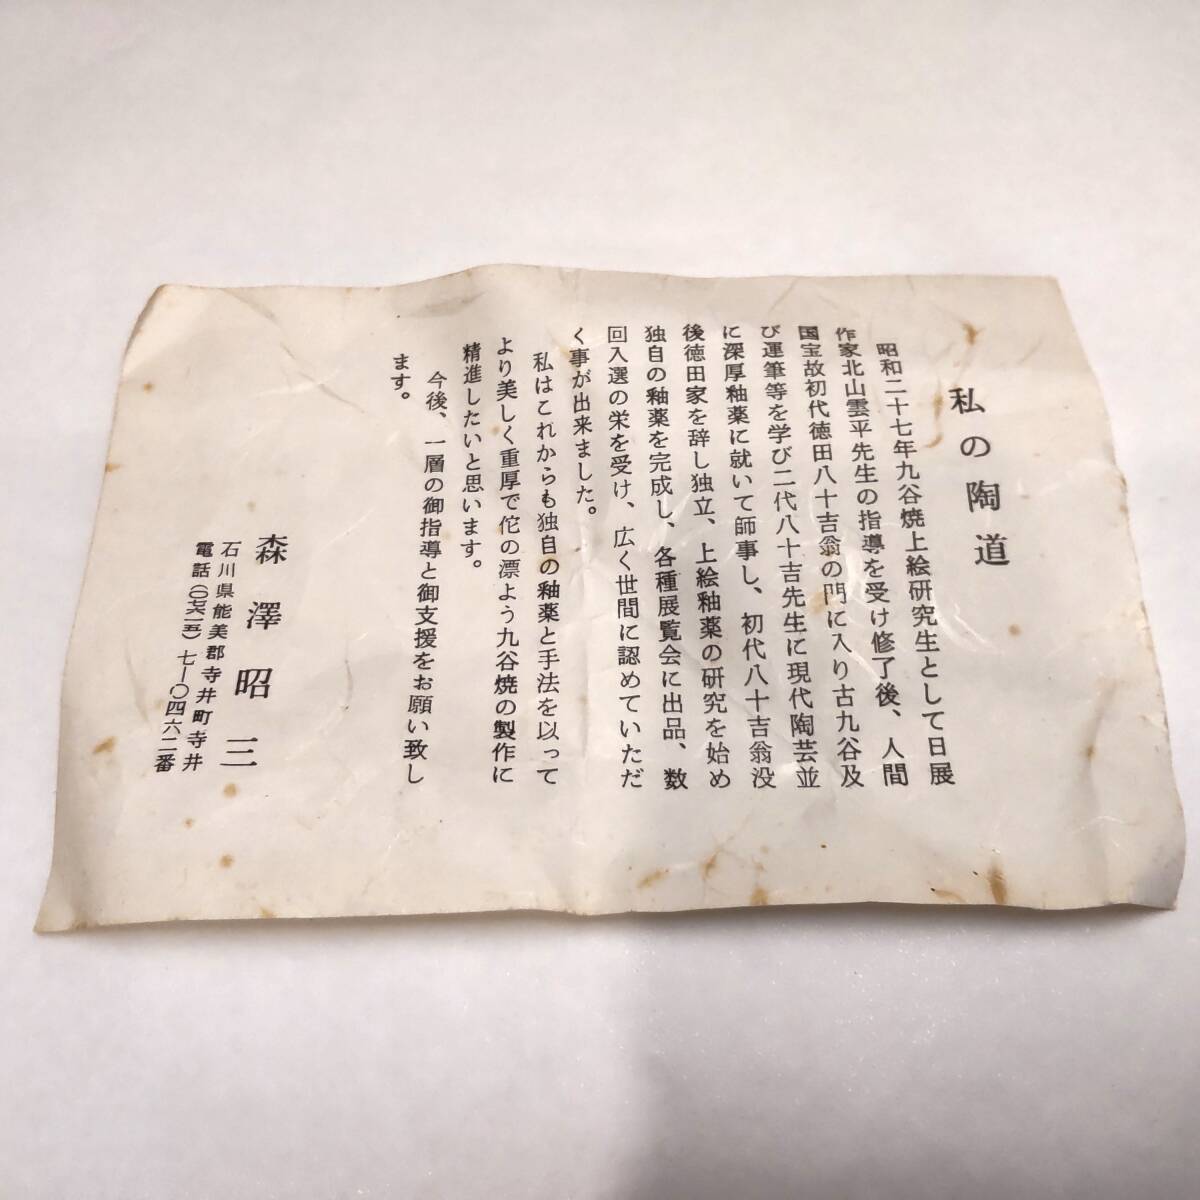 私の陶道
昭和二十七年九谷焼上絵研究生として日展
作家北山雲平先生の指導を受け修了後、人間
国宝故初代徳田八十吉翁の門に入り古九谷及
び運筆等を学び二代八十吉先生に現代陶芸並
に深厚釉薬に就いて師事し、初代八十吉翁没
後徳田家を辞し独立、上絵釉薬の研究を始め
独自の釉薬を完成し、各種展覧会に出品、数
回入選の栄を受け、広く世間に認めていただ
く事が出来ました。
私はこれからも独自の釉薬と手法を以って
より美しく重厚で佗の漂よう九谷焼の製作に
精進したいと思います。
今後、一層の御指導と御支援をお願い致し
ます。
森澤昭三
石川県能美郡寺井町寺井
電話(〇七六一五)七―〇四六二番